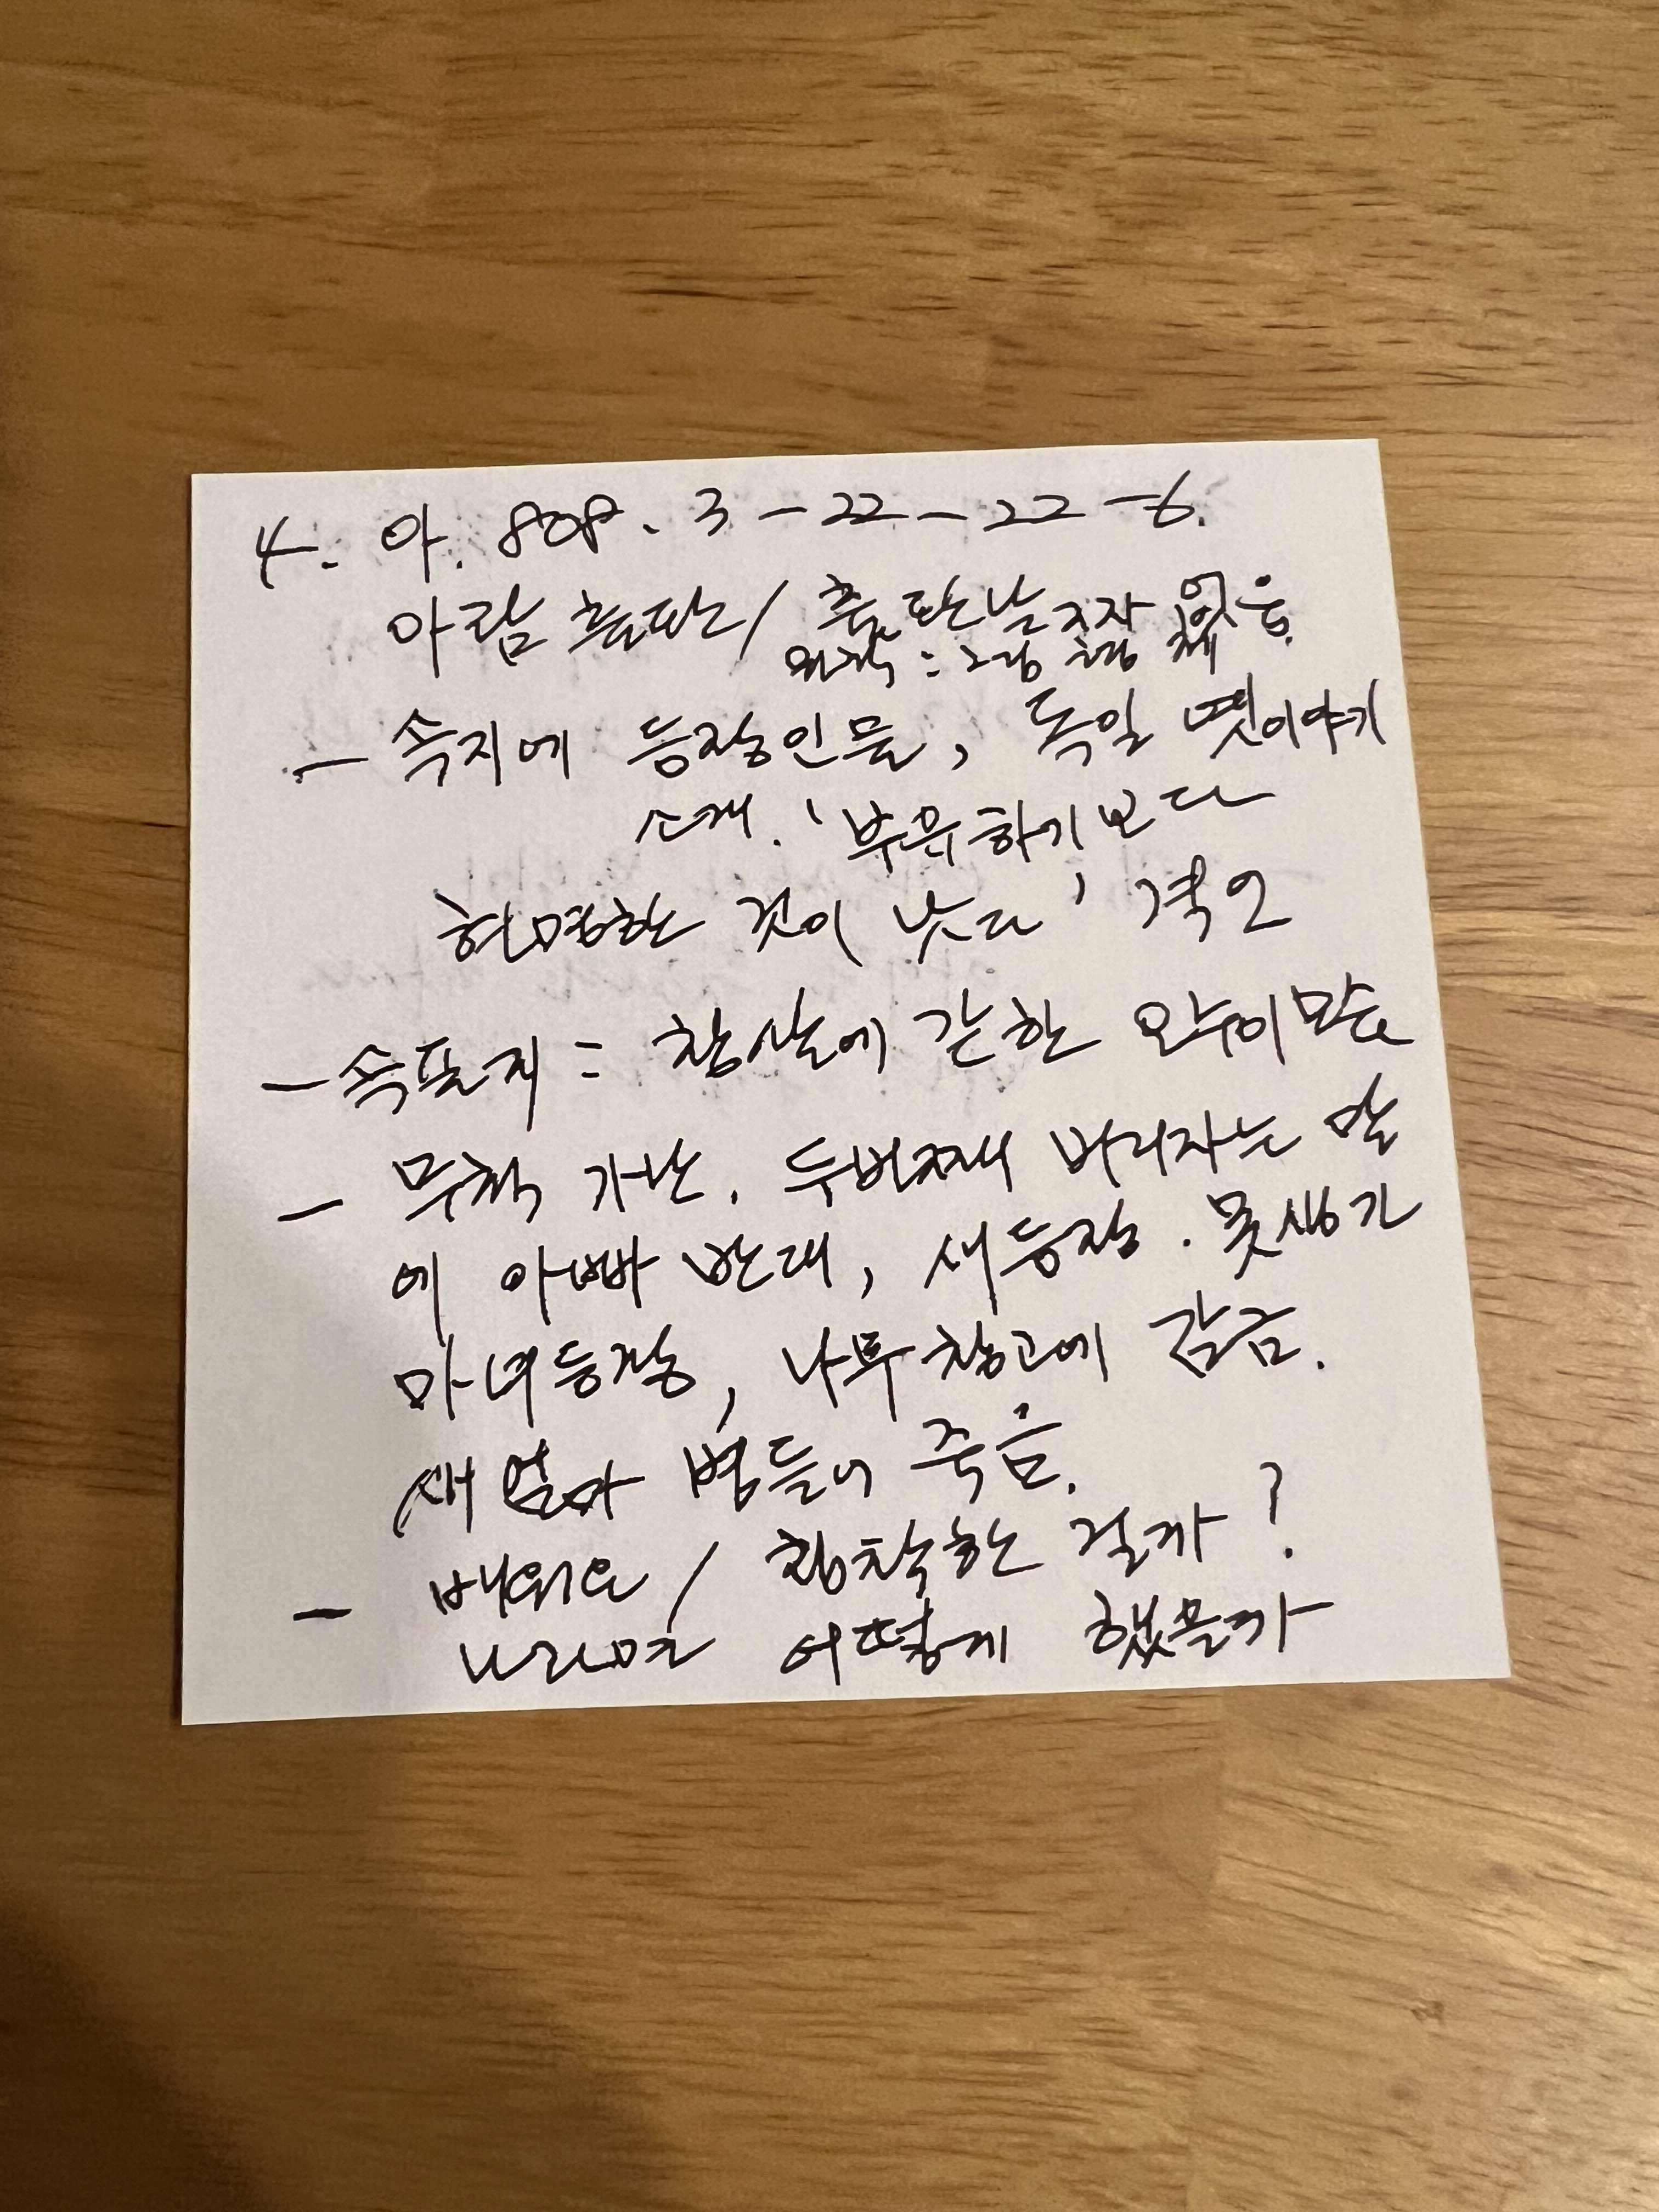 4. 아. 808. 3-22-22-6.
아람출판/ 출판날자 없음.
원작: 그림형제
- 속지에 등장인물, 독일 옛이야기
소개. '부유하기보다
현명한 것이 낫다' 격언
- 속표지 = 창살에 갇힌 오누이 모습
- 무척 가난. 두번째 버리자는 말
에 아빠 반대, 새등장. 못생긴
마녀등장, 나무창고에 감금.
새엄마 병들어 죽음.
- 배워요 / 침착한 걸까?
나라면 어떻게 했을까